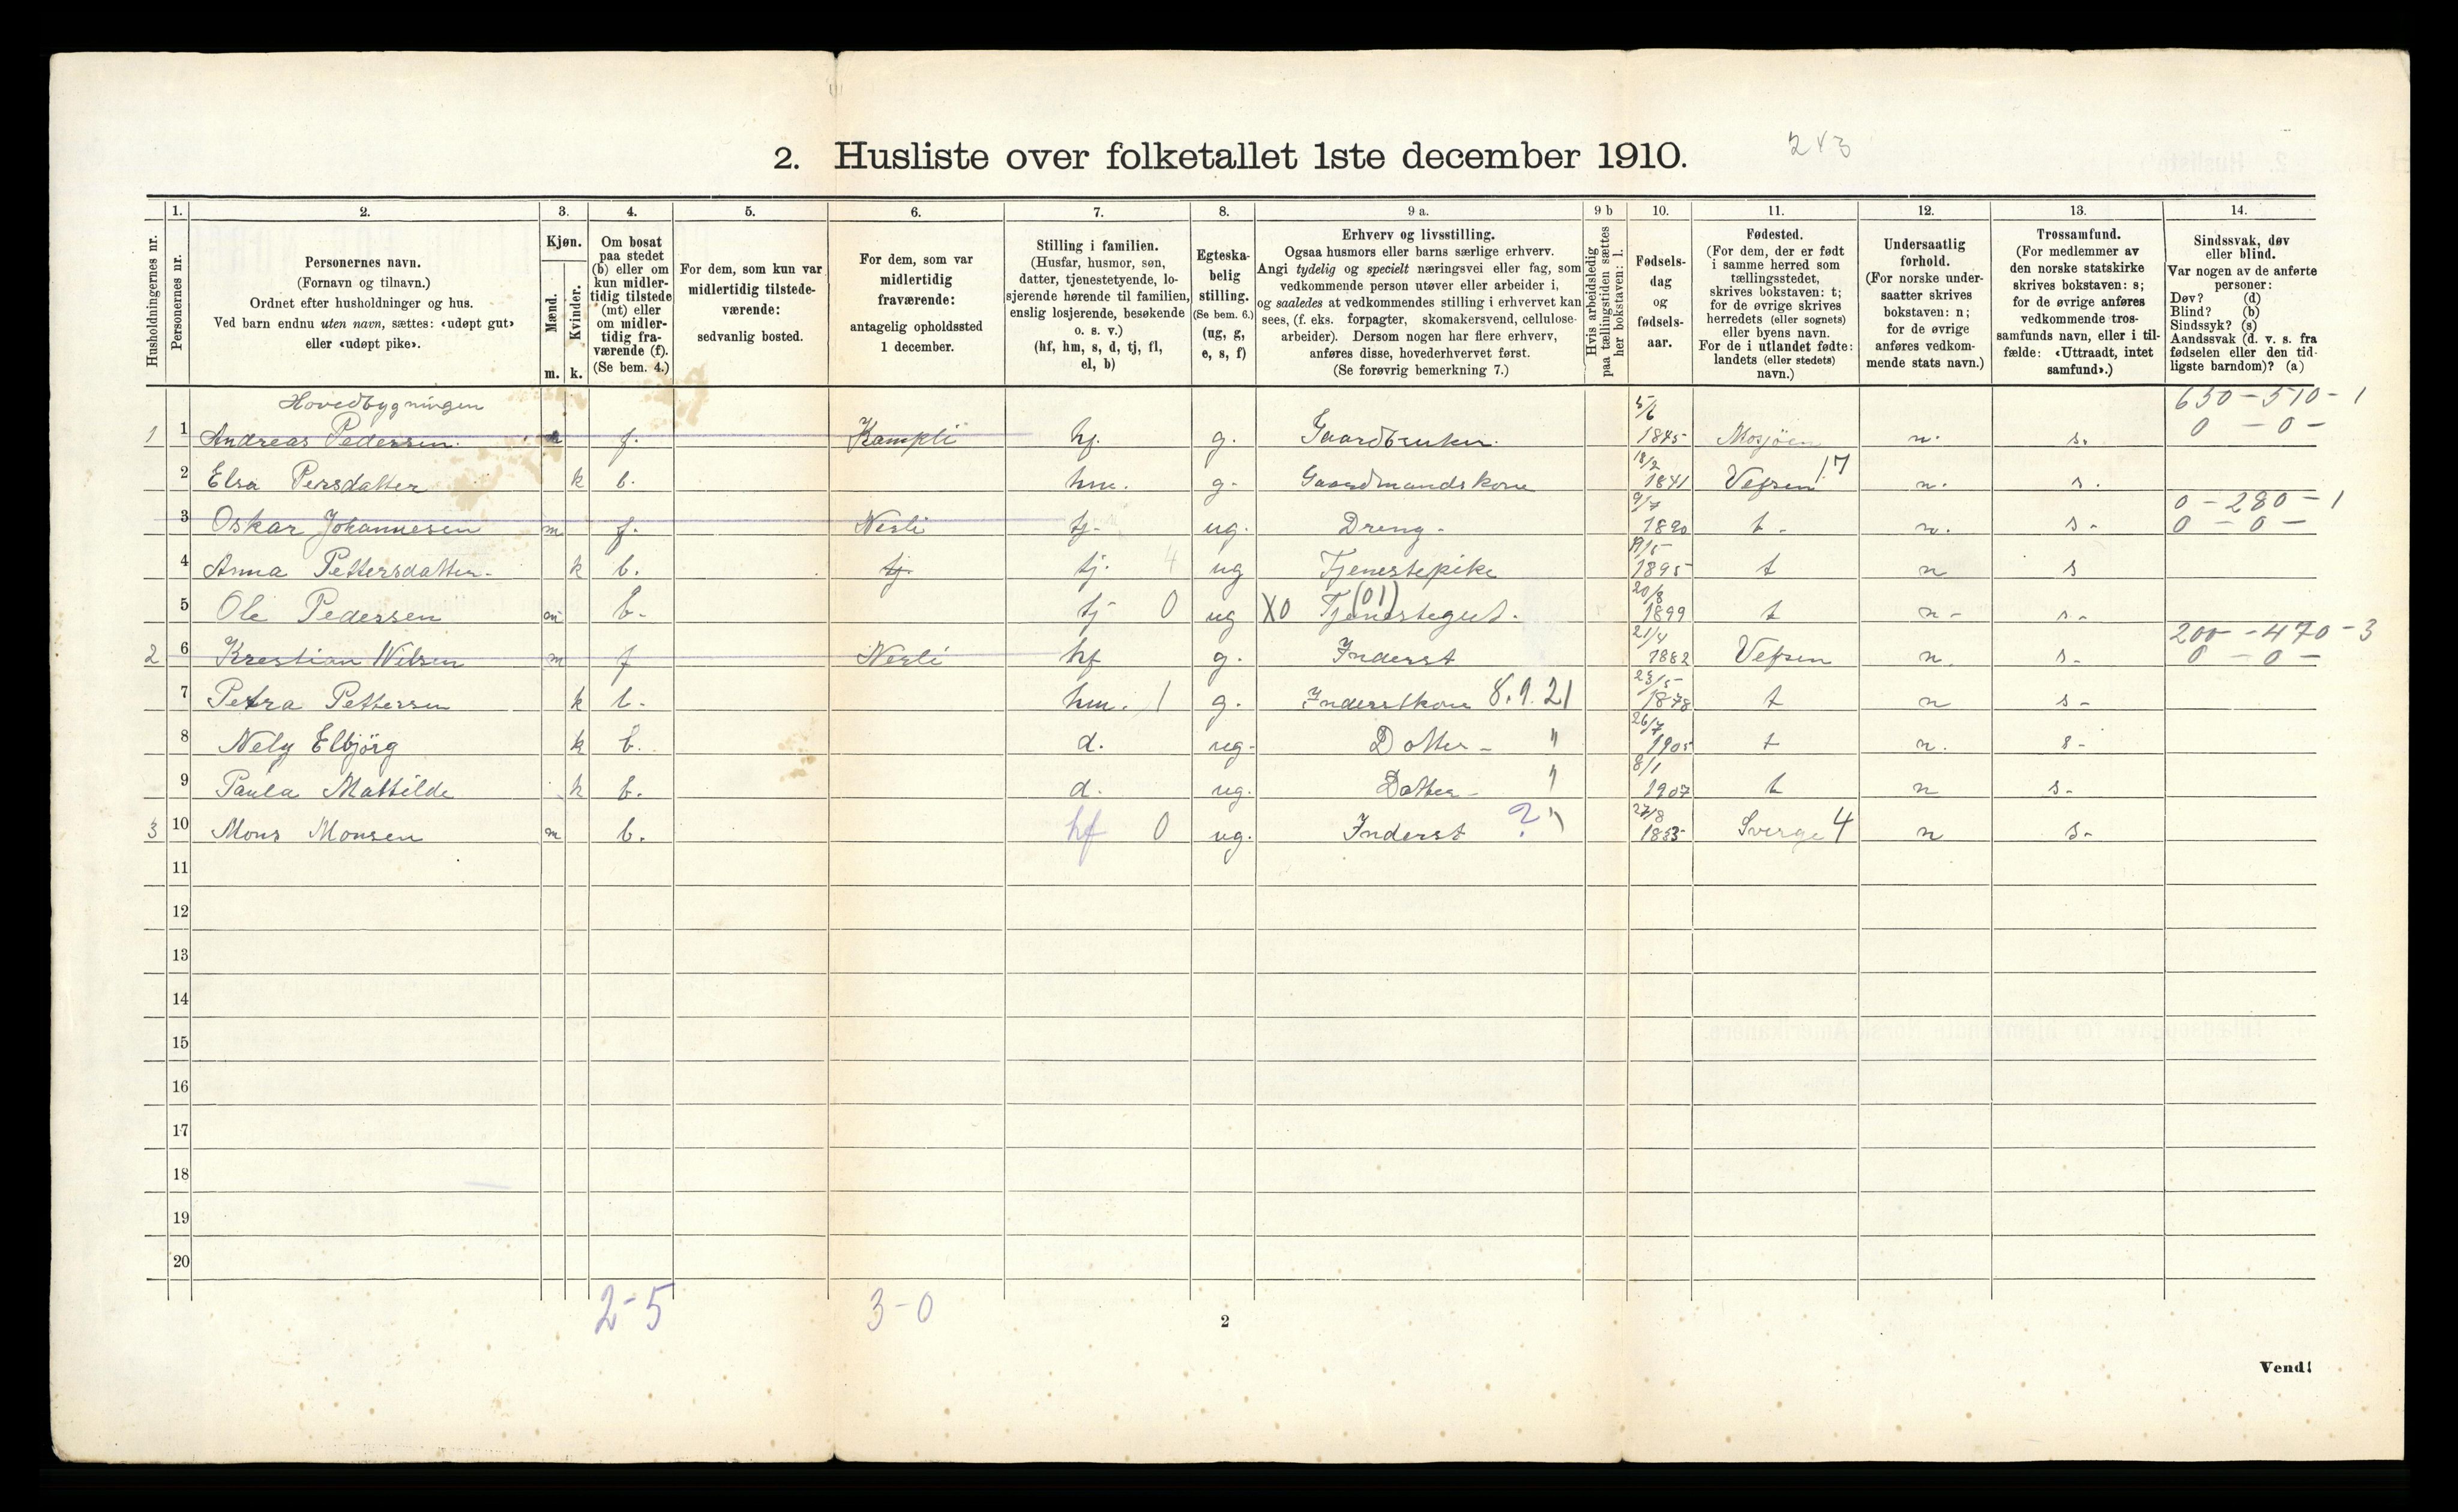 2. Husliste over folketallet 1ste december 1910.
2 x 3
1. 2. 3. 4. 5. 6. 7. 8. 9 a. 9 b 10. 11. 12. 13. 14.
Husholdningernes nr.
Personernes nr.
Personernes navn.
(Fornavn og tilnavn.)
Ordnet efter husholdninger og hus.
Ved barn endnu uten navn, sættes: «udøpt gut»
eller «udøpt pike».
Kjøn.
Mænd.
Kvinder.
m. k.
Om bosat
paa stedet
(b) eller om
kun midler-
tidig tilstede
(mt) eller
om midler-
tidig fra-
værende (f).
(Se bem. 4.)
For dem, som kun var
midlertidig tilstede-
værende:
sedvanlig bosted.
For dem, som var
midlertidig
fraværende:
antagelig opholdssted
1 december.
Stilling i familien.
(Husfar, husmor, søn,
datter, tjenestetyende, lo-
sjerende hørende til familien,
enslig losjerende, besøkende
o. s. v.)
(hf, hm, s, d, tj, fl,
el, b)
Egteska-
belig
stilling.
(Se bem. 6.)
(ug, g,
e, s, f)
Erhverv og livsstilling.
Ogsaa husmors eller barns særlige erhverv.
Angi tydelig og specielt næringsvei eller fag, som
vedkommende person utøver eller arbeider i,
og saaledes at vedkommendes stilling i erhvervet kan
sees, (f. eks. forpagter, skomakersvend, cellulose-
arbeider). Dersom nogen har flere erhverv,
anføres disse, hovederhvervet først.
(Se forøvrig bemerkning 7.)
Hvis arbeidsledig
paa tællingstiden sættes
her bokstaven: l.
Fødsels-
dag
og
fødsels-
aar.
Fødested.
(For dem, der er født
i samme herred som
tællingsstedet,
skrives bokstaven: t;
for de øvrige skrives
herredets (eller sognets)
eller byens navn.
For de i utlandet fødte:
landets (eller stedets)
navn.)
Undersaatlig
forhold.
(For norske under-
saatter skrives
bokstaven: n;
for de øvrige
anføres vedkom-
mende stats navn.)
Trossamfund.
(For medlemmer av
den norske statskirke
skrives bokstaven: s;
for de øvrige anføres
vedkommende tros-
samfunds navn, eller i til-
fælde: «Uttraadt, intet
samfund».)
Sindssvak, døv
eller blind.
Var nogen av de anførte
personer:
Døv? (d)
Blind? (b)
Sindssyk? (s)
Aandssvak (d. v. s. fra
fødselen eller den tid-
ligste barndom)? (a)
Hovedbygningen 5/6 650 - 510 - 1
1 1 Andreas Pedersen. m f. Kampli hf. g. Gaardbruker. 1845 Mosjöen n. s. 0 - 0 -
18/2
2 Elsa Persdatter k b. hm. g. Gaardmandskone 1841 Vefsen 17 n. s.
9/7 0 - 280 - 1
3 Oskar Johannesen m f. Nerli tj. ug. Dreng. 1890 t. n. s. 0 - 0 -
19/5
4 Anna Pettersdatter. k b. tj. tj. 4 ug Tjenestepike 1895 t n s
20/8
5 Ole Pedersen m b. tj 0 ug X0 Tjenestegut. (01) 1899 t n. s.
21/4 200 - 470 - 3
2 6 Krestian Nilsen m f Nerli hf g. Inderst 1882 Vefsen n. s. 0 - 0 -
23/5
7 Petra Pettersen k b. hm. 1 g. Inderstkone 8.9.21 1878 t n s.
26/7
8 Nely Elbjörg k b. d. ug. Dotter " 1905 t n. s.
8/1
9 Paula Mathilde k b. d. ug. Datter " 1907 t n s.
27/8
3 10 Mons Monsen m b. hf 0 ug. Inderst ? " 1853 Sverge 4 n s.
11
12
13
14
15
16
17
18
19
20
2-5 3-0
2
Vend!